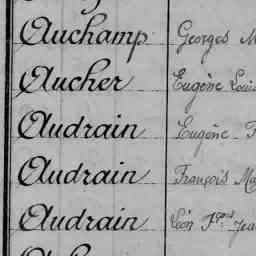 Auchamp Georges
Aucher Eugène Louis
Audrain Eugène
Audrain François
Audrain Léon Fçois Jean